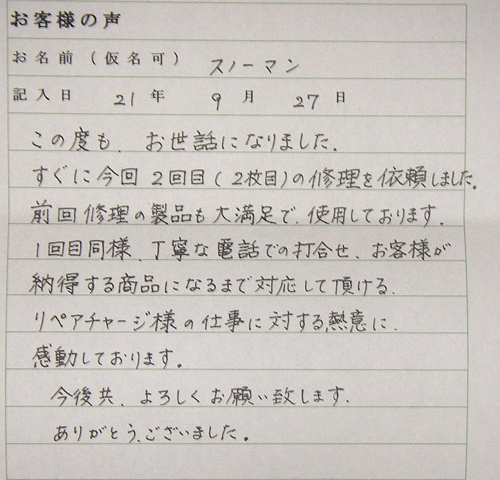 お客様の声
お名前（仮名可） スノーマン
記入日 21年 9月 27日
この度も、お世話になりました。
すぐに今回2回目(2枚目)の修理を依頼しました。
前回修理の製品も大満足で、使用しております。
1回目同様、丁寧な電話での打合せ、お客様が
納得する商品になるまで対応して頂ける、
リペアチャージ様の仕事に対する熱意に、
感動しております。
今後共、よろしくお願い致します。
ありがとうございました。